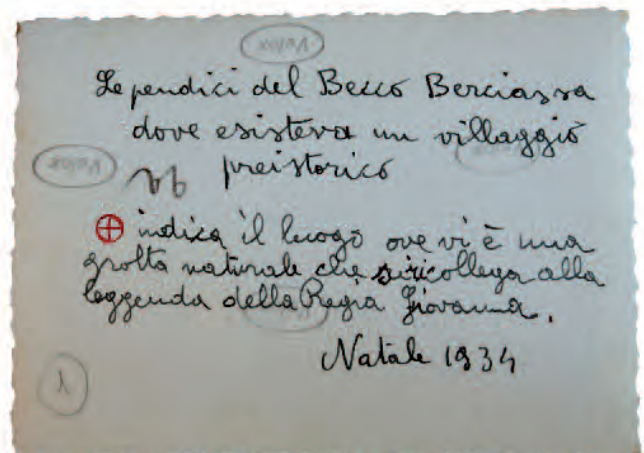 Velox
Le pendici del Becco Berciassa
dove esisteva un villaggio
preistorico
Velox
⊕ indica il luogo ove vi è una
grotta naturale che si ricollega alla
leggenda della Regia Giovanna.
Natale 1934
1